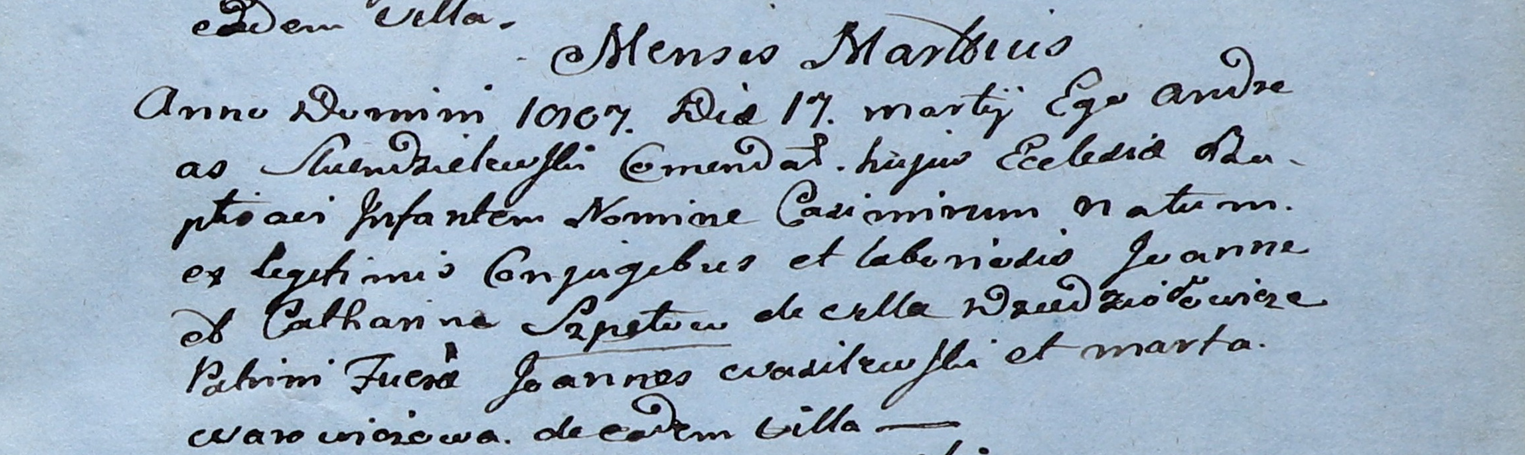 eadem villa.
Mensis Martius
Anno Domini 1807. Die 17. martij Ego Andre
as Comendat. hujus Eclesia Ba-
ptisavi Infantem Nomine Casimirum natum.
ex legitimis Conjugibus et laboriosis Joanne
et Catharina de villa
Patrini Fuere Joannes Wasilewski et marta.
de eadem villa —